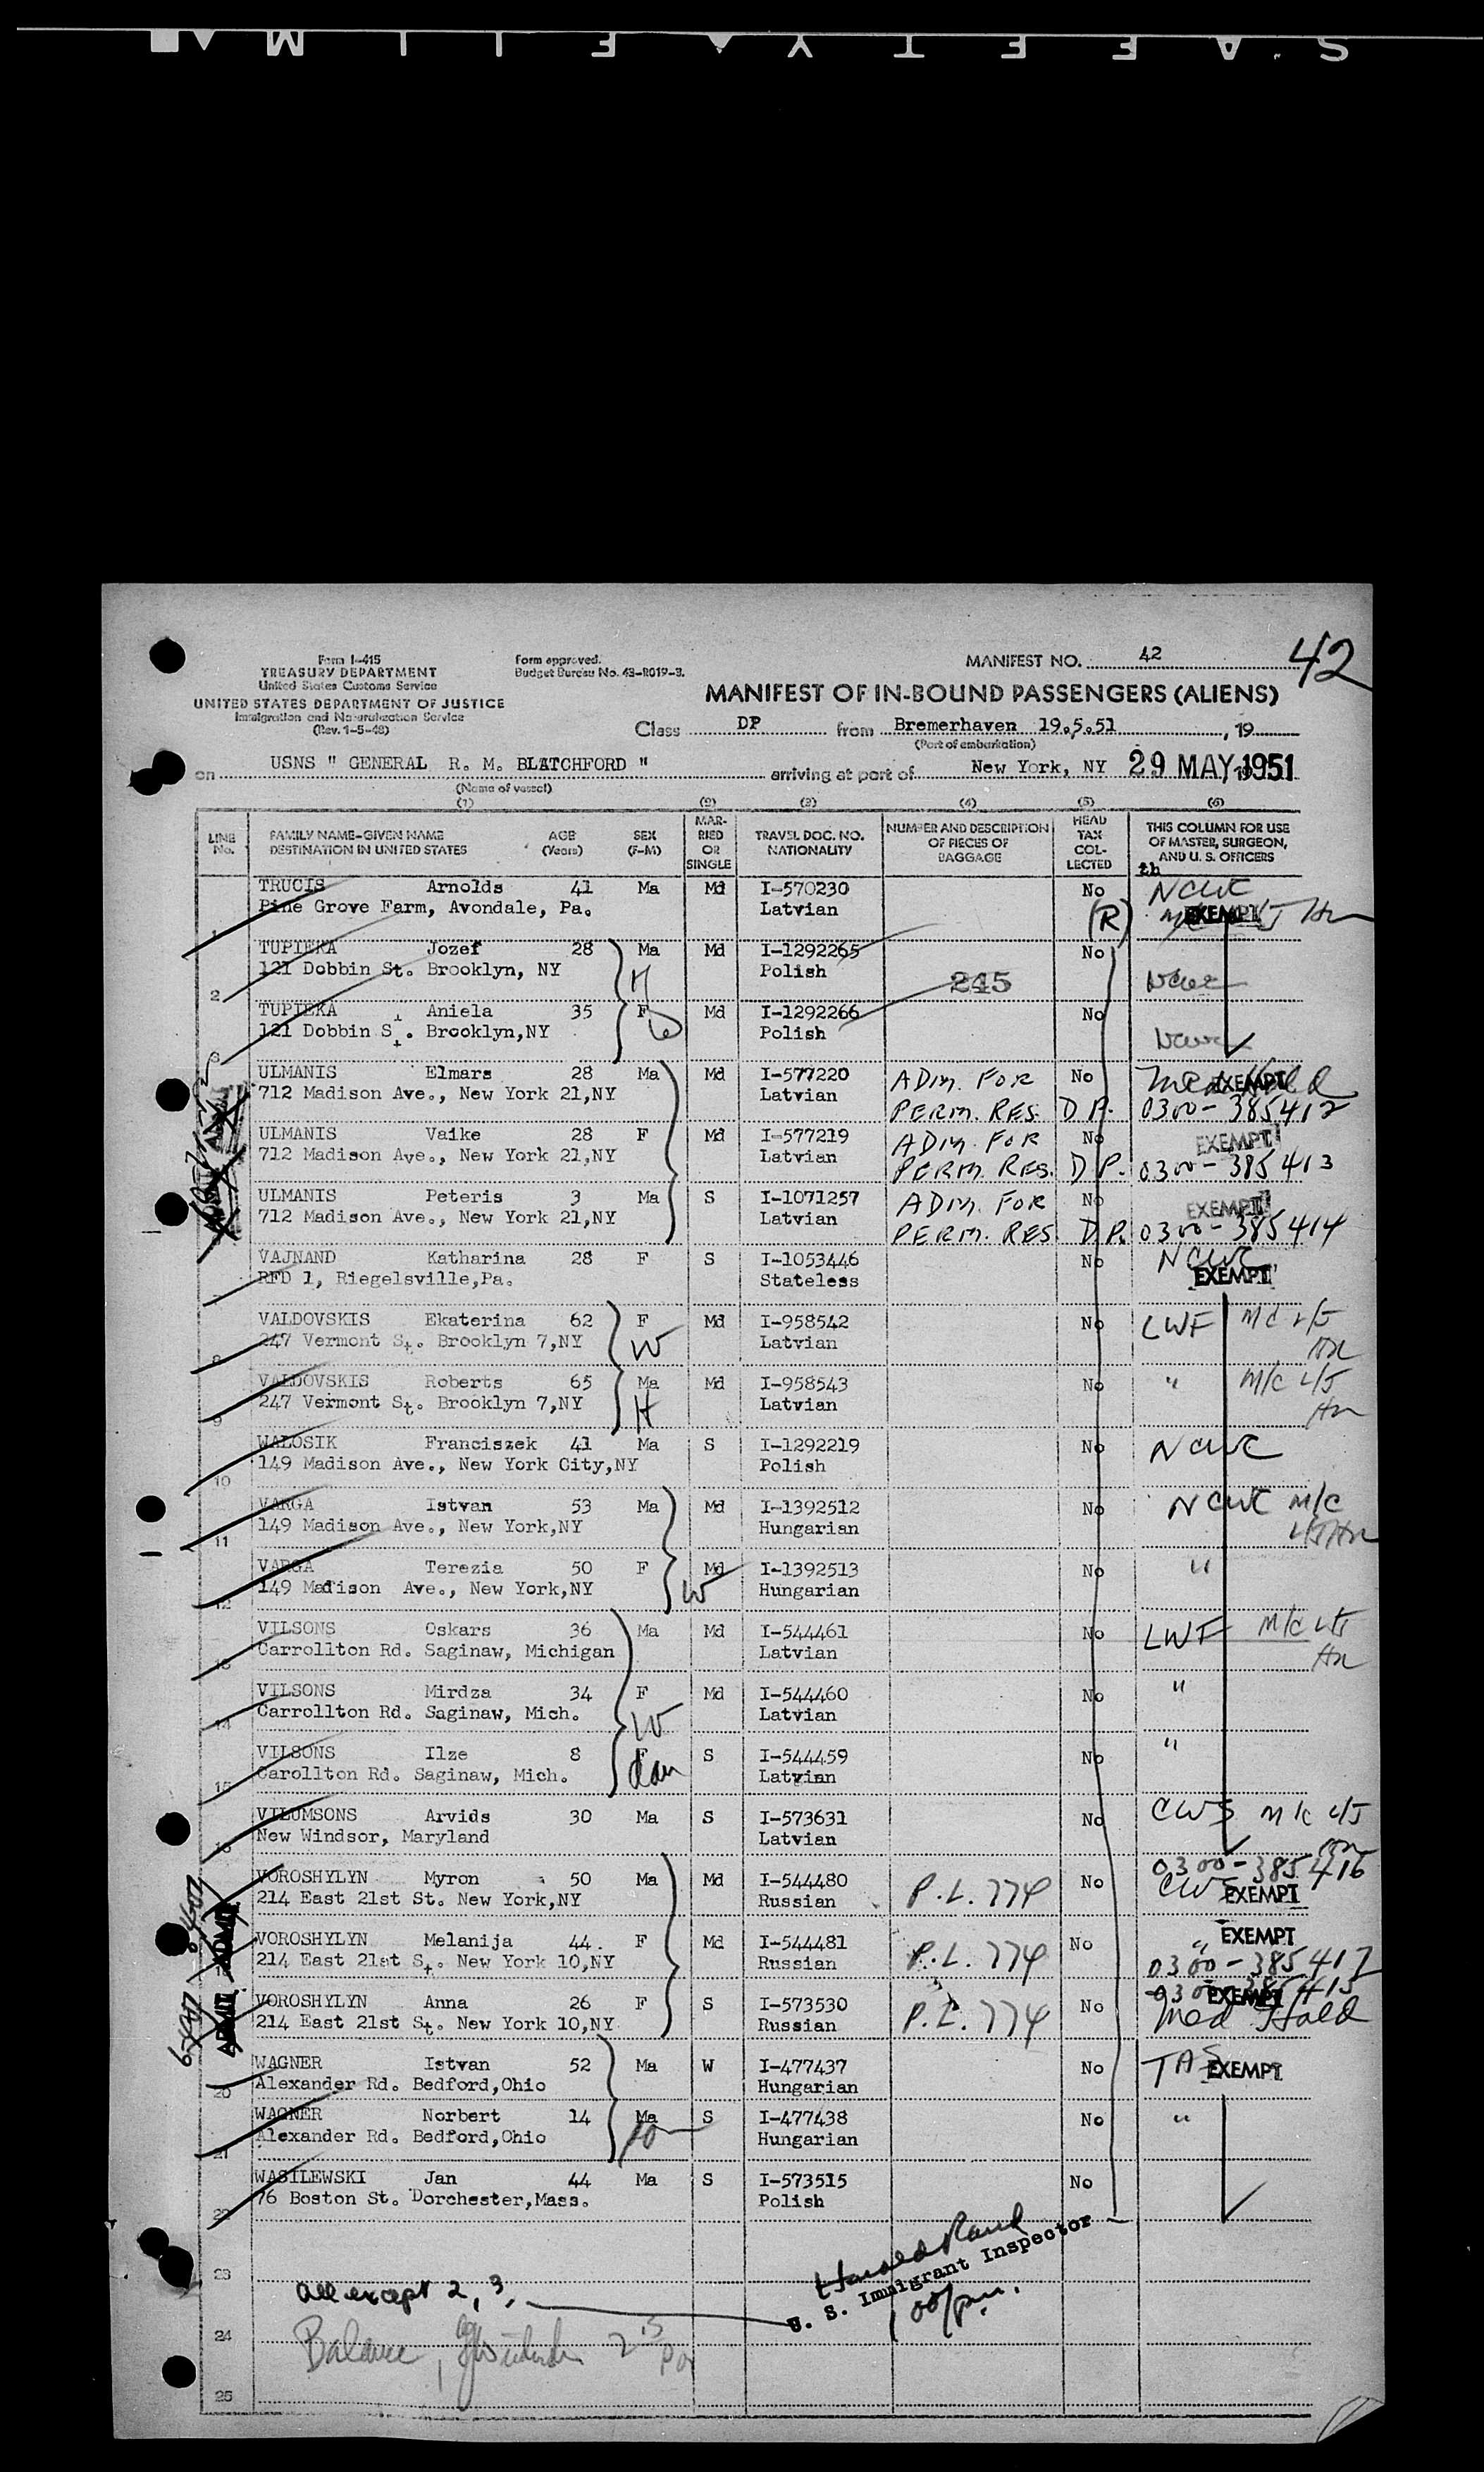 SAFETY FILM
42
Form I-415
TREASURY DEPARTMENT
United States Customs Service
UNITED STATES DEPARTMENT OF JUSTICE
Immigration and Naturalization Service
(Rev. 1-5-48)
Form approved.
Budget Bureau No. 43-R019-3.
MANIFEST NO. 42
MANIFEST OF IN-BOUND PASSENGERS (ALIENS)
Class DP from Bremerhaven 19.5.51, 19
(Port of embarkation)
on USNS " GENERAL R. M. BLATCHFORD " arriving at port of New York, NY 29 MAY 1951
(Name of vessel)
(1) (2) (3) (4) (5) (6)
LINE No. FAMILY NAME-GIVEN NAME DESTINATION IN UNITED STATES AGE (Years) SEX (F-M) MARRIED OR SINGLE TRAVEL DOC. NO. NATIONALITY NUMBER AND DESCRIPTION OF PIECES OF BAGGAGE HEAD TAX COLLECTED THIS COLUMN FOR USE OF MASTER, SURGEON, AND U. S. OFFICERS
th
TRUCIS Arnolds 41 Ma Md I-570230 No NCWC
1 Pine Grove Farm, Avondale, Pa. Latvian (R) EXEMPT
TUPIEKA Jozef 28 Ma Md I-1292265 No
2 121 Dobbin St. Brooklyn, NY H Polish 245 NCWC
TUPIEKA Aniela 35 F Md I-1292266 No
3 121 Dobbin St. Brooklyn,NY W Polish NCWC
ULMANIS Elmars 28 Ma Md I-577220 ADM. FOR No Med Hold EXEMPT
712 Madison Ave., New York 21,NY Latvian PERM. RES. D.P. 0300-385412
ULMANIS Vaike 28 F Md I-577219 ADM. FOR No EXEMPT
712 Madison Ave., New York 21,NY Latvian PERM. RES. D.P. 0300-385413
ULMANIS Peteris 3 Ma S I-1071257 ADM. FOR No EXEMPT
712 Madison Ave., New York 21,NY Latvian PERM. RES. D.P. 0300-385414
VAJNAND Katharina 28 F S I-1053446 No NCWC
RFD 1, Riegelsville,Pa. Stateless EXEMPT
VALDOVSKIS Ekaterina 62 F Md I-958542 No LWF M/C
8 247 Vermont St. Brooklyn 7,NY W Latvian
VALDOVSKIS Roberts 65 Ma Md I-958543 No " M/C
9 247 Vermont St. Brooklyn 7,NY H Latvian
WALOSIK Franciszek 41 Ma S I-1292219 No NCWC
10 149 Madison Ave., New York City,NY Polish
VARGA Istvan 53 Ma Md I-1392512 No NCWC M/C
11 149 Madison Ave., New York,NY Hungarian
VARGA Terezia 50 F Md I-1392513 No "
12 149 Madison Ave., New York,NY W Hungarian
VILSONS Oskars 36 Ma Md I-544461 No LWF M/C
13 Carrollton Rd. Saginaw, Michigan Latvian
VILSONS Mirdza 34 F Md I-544460 No "
14 Carrollton Rd. Saginaw, Mich. W Latvian
VILSONS Ilze 8 F S I-544459 No "
15 Carollton Rd. Saginaw, Mich. dau Latvian
VILUMSONS Arvids 30 Ma S I-573631 No CWS M/C
16 New Windsor, Maryland Latvian
VOROSHYLYN Myron 50 Ma Md I-544480 P.L. 774 No 0300-385416
214 East 21st St. New York,NY Russian CWS EXEMPT
VOROSHYLYN Melanija 44 F Md I-544481 P.L. 774 No " EXEMPT
ADMIT 214 East 21st St. New York 10,NY Russian 0300-385417
VOROSHYLYN Anna 26 F S I-573530 P.L. 774 No 0300-385415 EXEMPT
ADMIT 214 East 21st St. New York 10,NY Russian Med Hold
WAGNER Istvan 52 Ma W I-477437 No TAS EXEMPT
20 Alexander Rd. Bedford,Ohio Hungarian
WAGNER Norbert 14 Ma S I-477438 No "
21 Alexander Rd. Bedford,Ohio Hungarian
WASILEWSKI Jan 44 Ma S I-573515 No
22 76 Boston St. Dorchester,Mass. Polish
23
all except 2, 3,
Harold Rand
U. S. Immigrant Inspector
1 00/pm.
24
Balance,
25